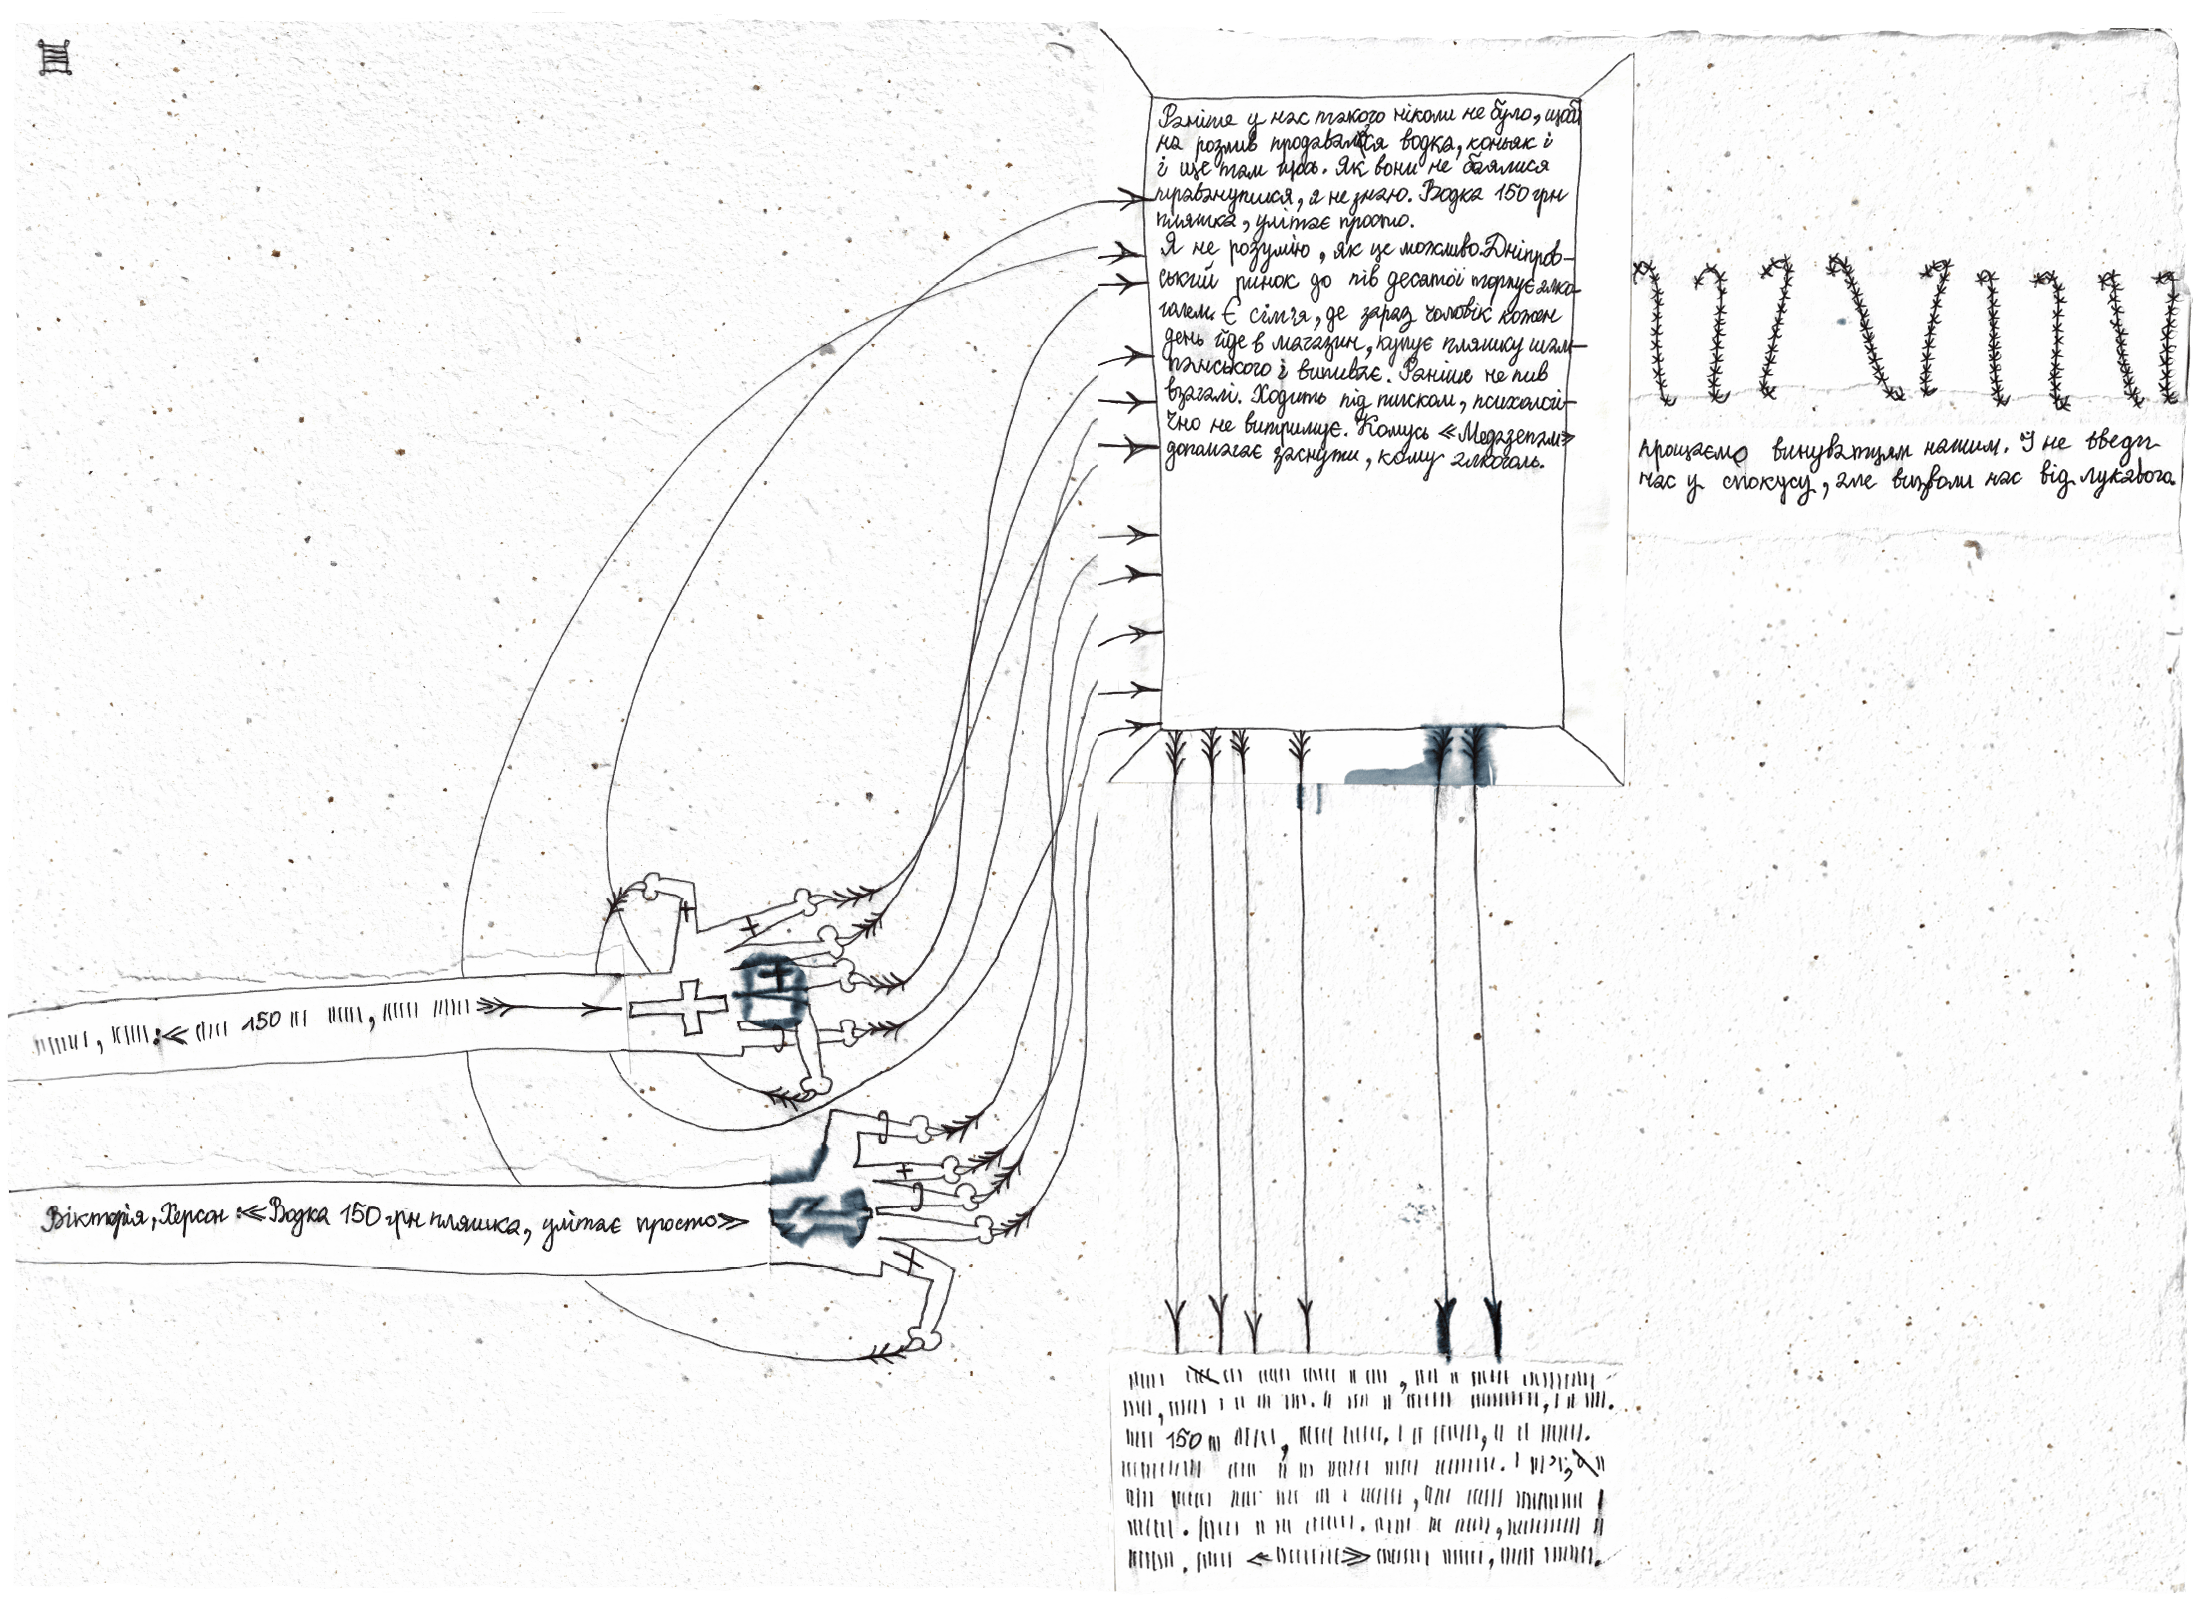 Раніше у нас такого ніколи не було, щоб
на розлив продавалося водка, коньяк і
і ще там щось. Як вони не боялися
травануться, я не знаю. Водка 150 грн
пляшка, улітає просто.
Я не розумію, як це можливо. Дніпров-
ський ринок до пів десятої торгує алко-
голем. Є сім'я, де зараз чоловік кожен
день йде в магазин, купує пляшку шам-
панського і випиває. Раніше не пив
взагалі. Ходить під тиском, психологі-
чно не витримує. Комусь «Медазепам»
допомагає заснути, кому алкоголь.
прощаємо винуватцям нашим. І не введи
нас у спокусу, але визволи нас від лукавого.
150
Вікторія, Херсон: «Водка 150 грн пляшка, улітає просто»
150